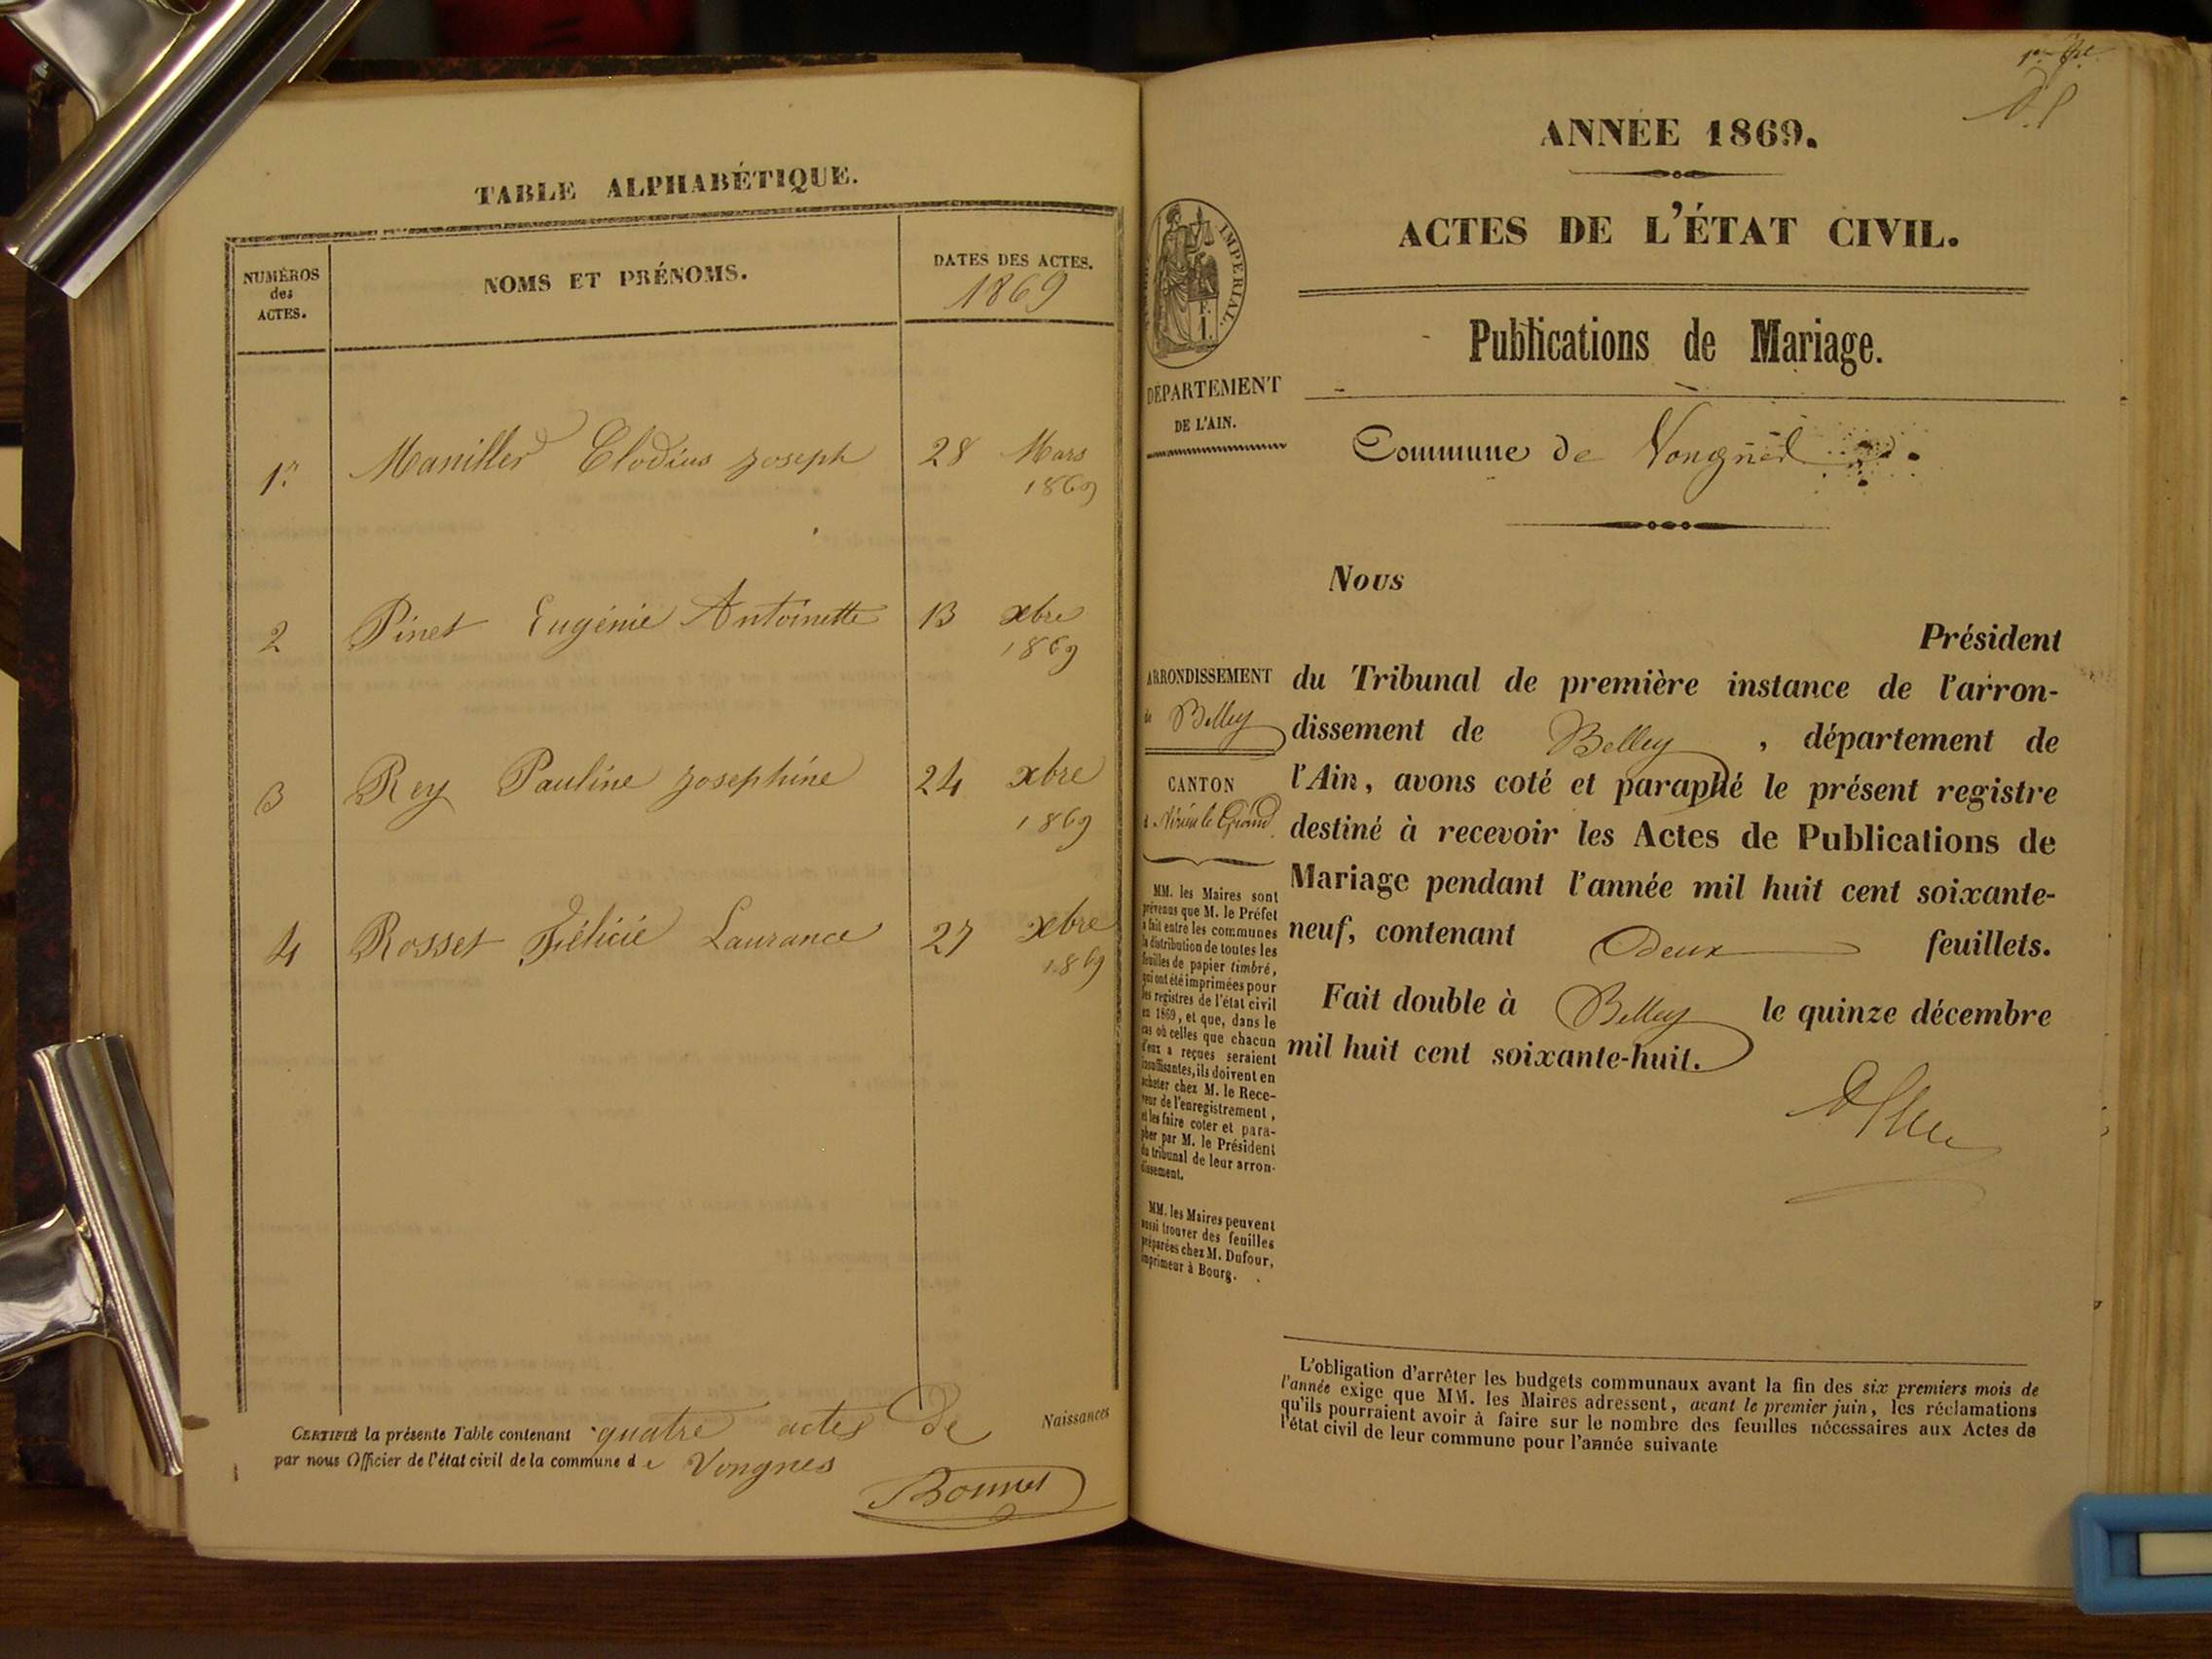 TABLE ALPHABÉTIQUE.
NUMÉROS
des
ACTES.
NOMS ET PRÉNOMS.
DATES DES ACTES.
1869
1er Maniller Clodius Joseph 28 Mars
1869
2 Pinet Eugénie Antoinette 13 xbre
1869
3 Rey Pauline Josephine 24 xbre
1869
4 Rosset Félicie Laurance 27 xbre
1869
CERTIFIÉ la présente Table contenant quatre actes de Naissances
par nous Officier de l'état civil de la commune de Vongnes
Bonnet
ANNÉE 1869.
ACTES DE L'ÉTAT CIVIL.
IMPÉRIAL.
Publications de Mariage.
DÉPARTEMENT
DE L'AIN.
Commune de Vongnes
Nous
Président
du Tribunal de première instance de l'arron-
dissement de Belley, département de
l'Ain, avons coté et paraphé le présent registre
destiné à recevoir les Actes de Publications de
Mariage pendant l'année mil huit cent soixante-
neuf, contenant Deux feuillets.
Fait double à Belley le quinze décembre
mil huit cent soixante-huit.
ARRONDISSEMENT
de Belley
CANTON
Virieu le Grand
MM. les Maires sont
prévenus que M. le Préfet
a fait entre les communes
la distribution de toutes les
feuilles de papier timbré,
qui ont été imprimées pour
les registres de l'état civil
en 1869, et que, dans le
cas où celles que chacun
d'eux a reçues seraient
insuffisantes, ils doivent en
acheter chez M. le Rece-
veur de l'enregistrement,
et les faire coter et para-
pher par M. le Président
du tribunal de leur arron-
dissement.
MM. les Maires peuvent
aussi trouver des feuilles
préparées chez M. Dufour,
imprimeur à Bourg.
L'obligation d'arrêter les budgets communaux avant la fin des six premiers mois de
l'année exige que MM. les Maires adressent, avant le premier juin, les réclamations
qu'ils pourraient avoir à faire sur le nombre des feuilles nécessaires aux Actes de
l'état civil de leur commune pour l'année suivante